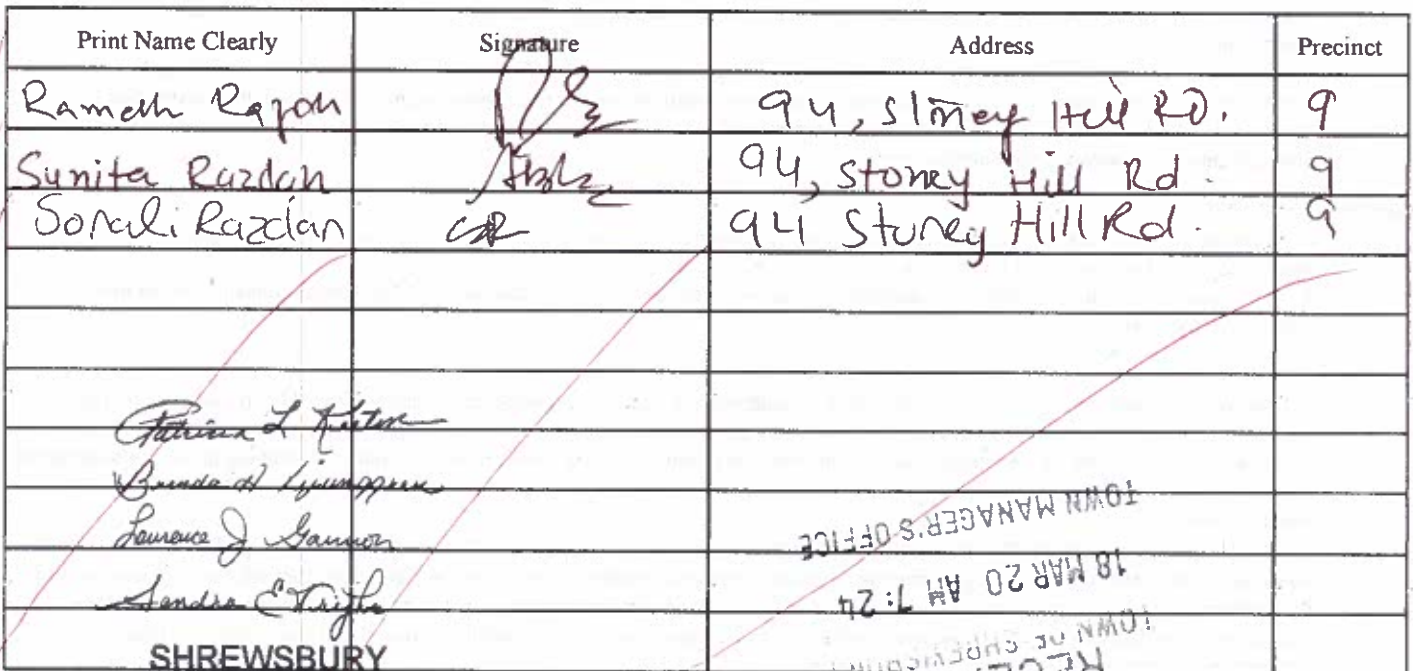 Print Name Clearly Signature Address Precinct
Ramesh Razdan 94, Stoney Hill RD. 9
Sunita Razdan 94, Stoney Hill Rd. 9
Sonali Razdan SR 94 Stoney Hill Rd. 9
Patricia L
Brenda H
Laurence J Gannon
Sandra E Wright
SHREWSBURY
RECE
TOWN OF SHREWSBURY
18 MAR 20 AM 7:24
TOWN MANAGER'S OFFICE